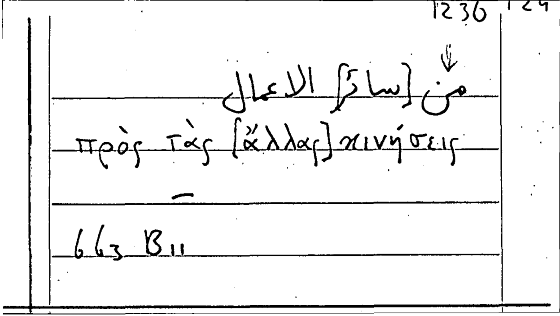 1236 124
من [سائر] الاعمال
πρὸς τὰς [ἄλλας] κινήσεις
—
663 B 11